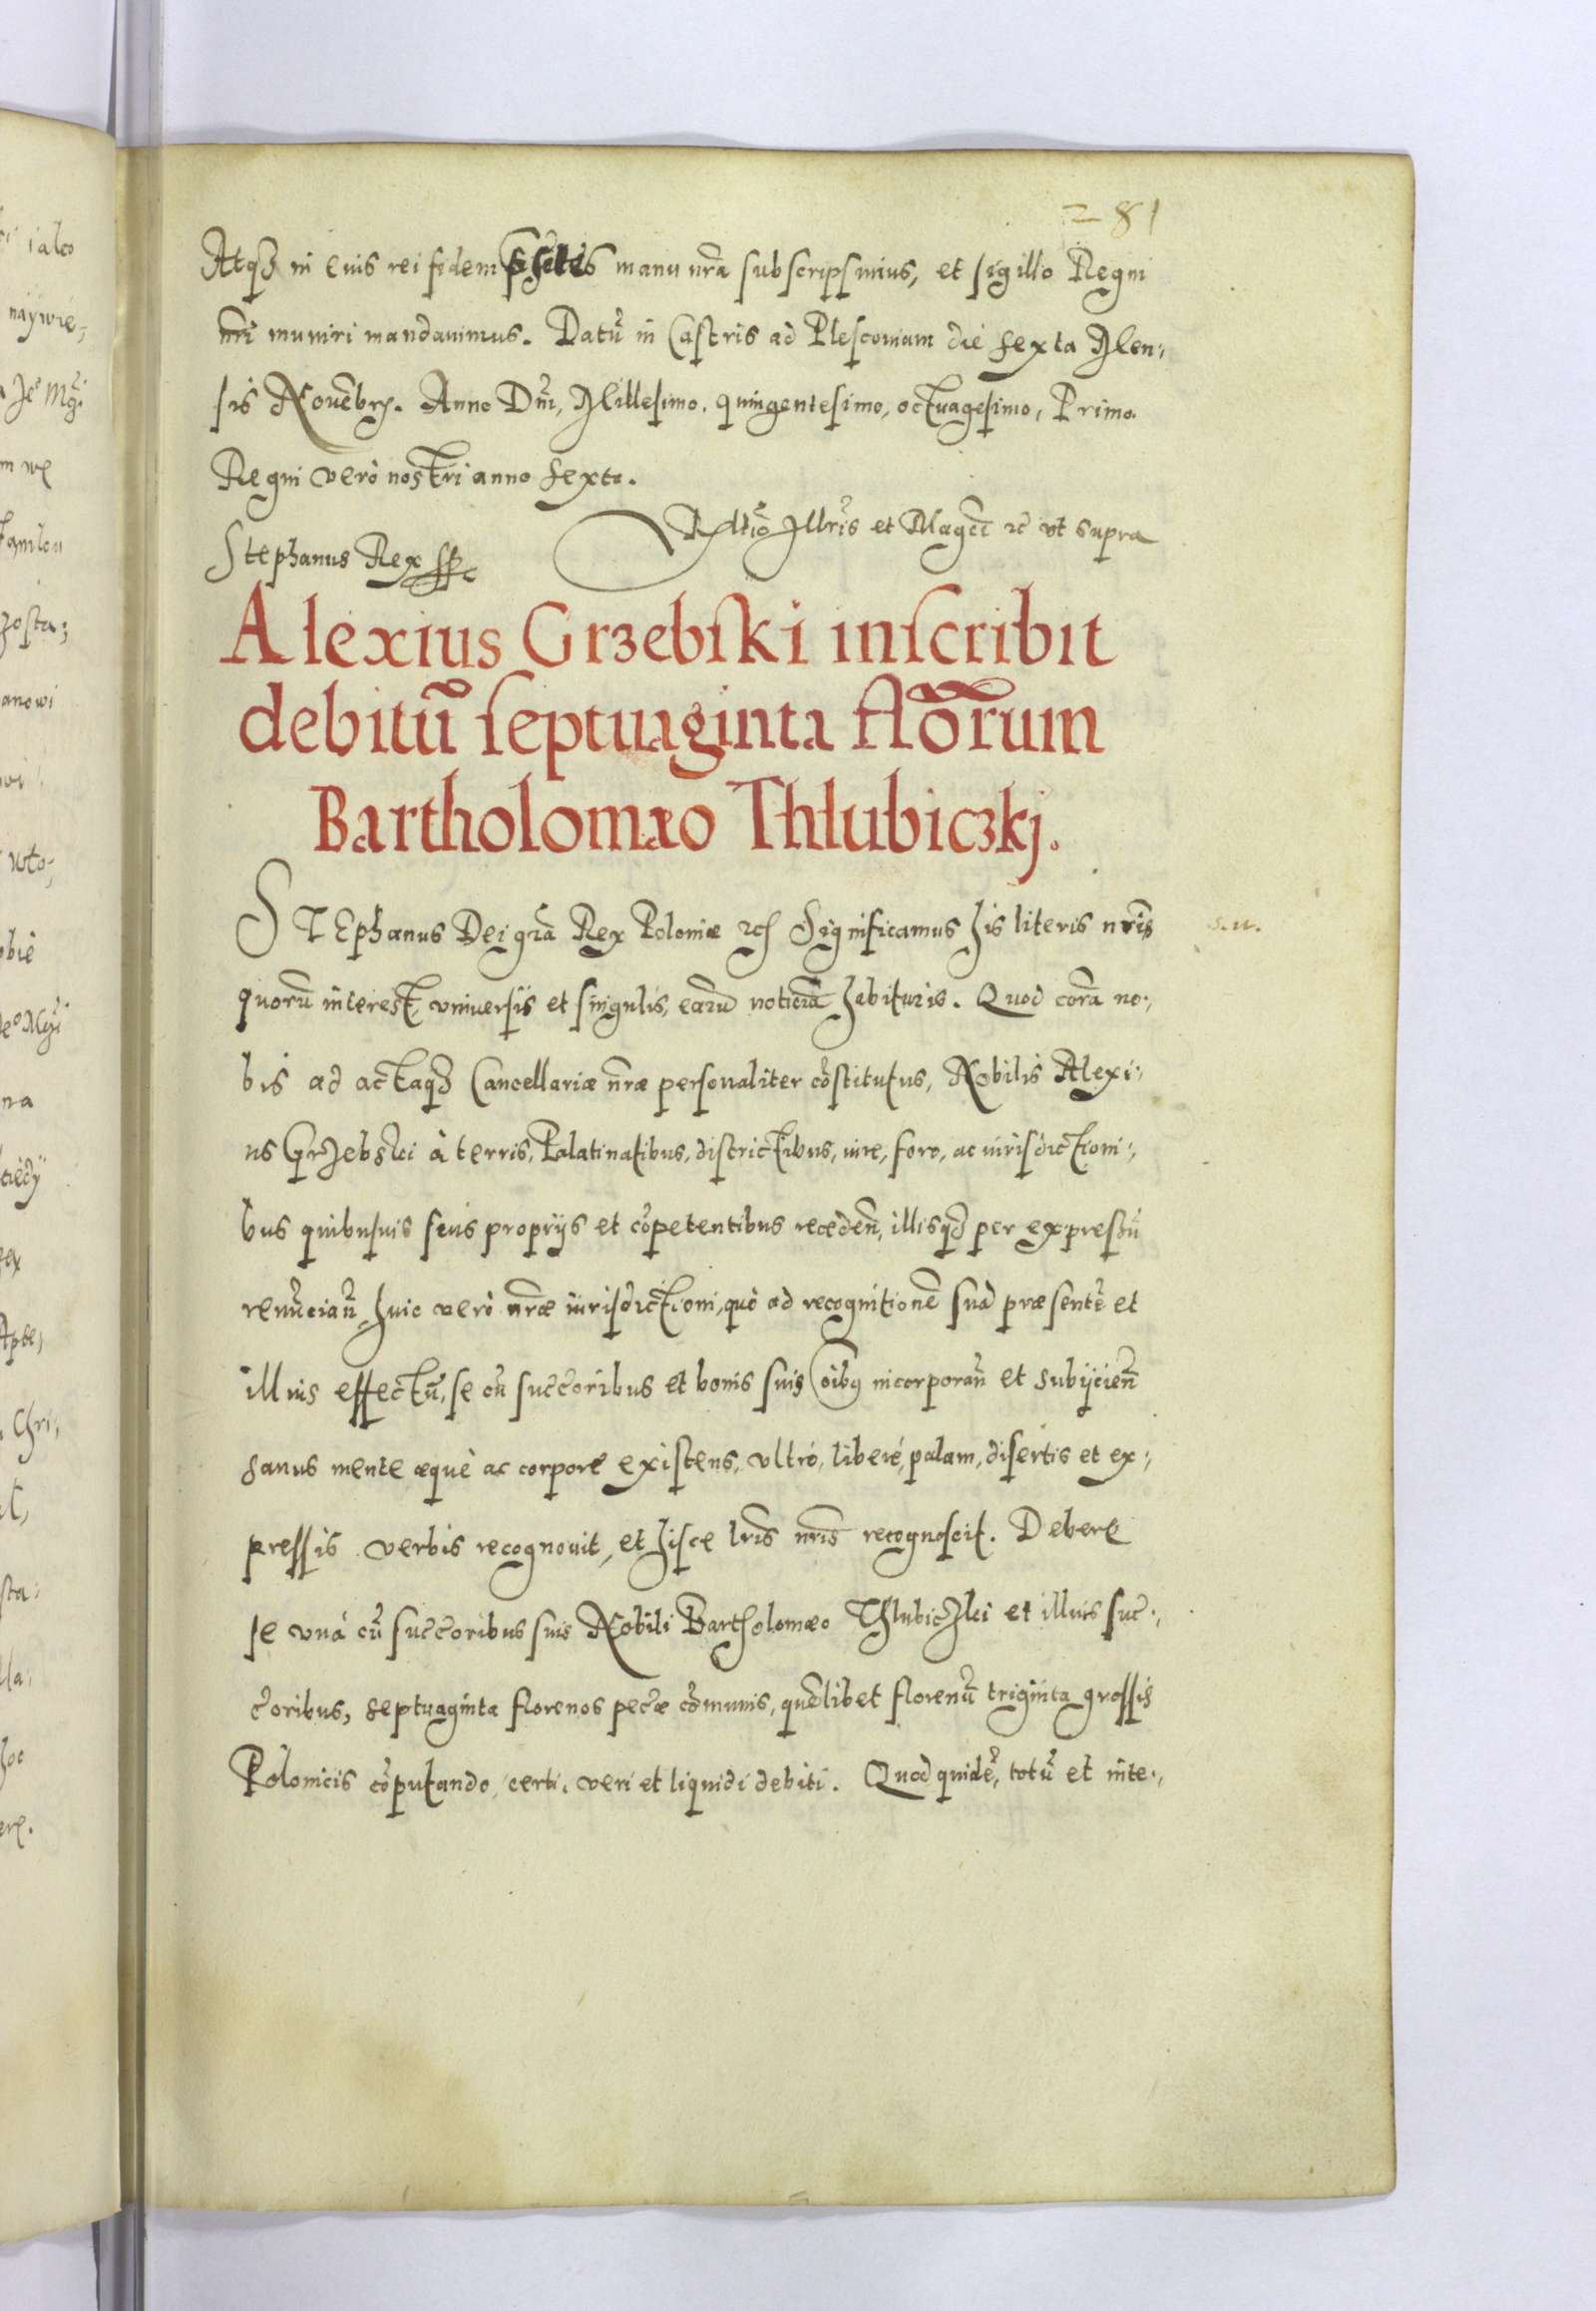 281
Atq3 in euis rei fidem pñtes manu nrã subscripsimus, et sigillo Regni
nri muniri mandauimus. Datũ in Castris ad Plescouiam die sexta Men:,
sis Nouẽbr. Anno Dñi, Millesimo, quingentesimo, octuagesimo, Primo.
Regni verò nostri anno sexto.
Rltio Illris et Magci ꝛc vt supra
Stephanus Rex sst
Alexius Grzebski inscribit
debitũ septuaginta flõrum
Bartholomæo Thlubiczkj.
STEphanus Dei grã Rex Poloniæ ꝛc Significamus his literis nris s. u.
quorũ interest, vniuersis et singulis, earũ noticiã habituris. Quod corã no:,
bis ad actaq3 Cancellariæ nræ personaliter cõstitutus, Nobilis Alexi:,
us Grzebski à terris, Palatinatibus, districtibus, iure, foro, ac iurisdictioni:,
bus quibusuis suis propriis et cõpetentibus recedeñ, illisq3 per expressũ
renũciañ, huic verò nræ iurisdictioni, quò ad recognitionẽ suã præsentẽ et
illius effectũ, se cũ succoribus et bonis suis oibg incorporañ et subijcieñ
sanus mente æquè ac corpore existens, vltrò, liberè, palam, disertis et ex:,
pressis verbis recognouit, et hisce lris nris recognoscit. Debere
se vnà cũ succoribus suis Nobili Bartholomæo Thlubiczki et illius suc:,
coribus, septuaginta florenos pecæ cõmunis, quẽlibet florenũ triginta grossis
Polonicis cõputando, certi, veri et liquidi debiti. Quod quidẽ, totũ et inte:,